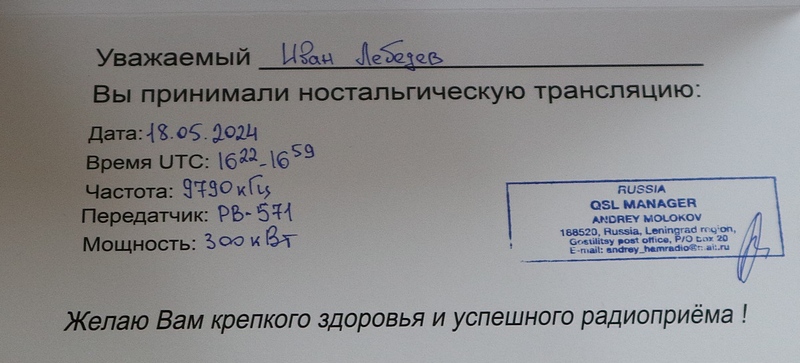 Уважаемый Иван Лебедев
Вы принимали ностальгическую трансляцию:
Дата: 18.05.2024
Время UTC: 16²²-16⁵⁹
Частота: 9790 кГц
Передатчик: РВ-571
Мощность: 300 кВт
RUSSIA
QSL MANAGER
ANDREY MOLOKOV
188520, Russia, Leningrad region,
Gostilitsy post office, P/O box 20
E-mail: andrey_hamradio@mail.ru
Желаю Вам крепкого здоровья и успешного радиоприёма !